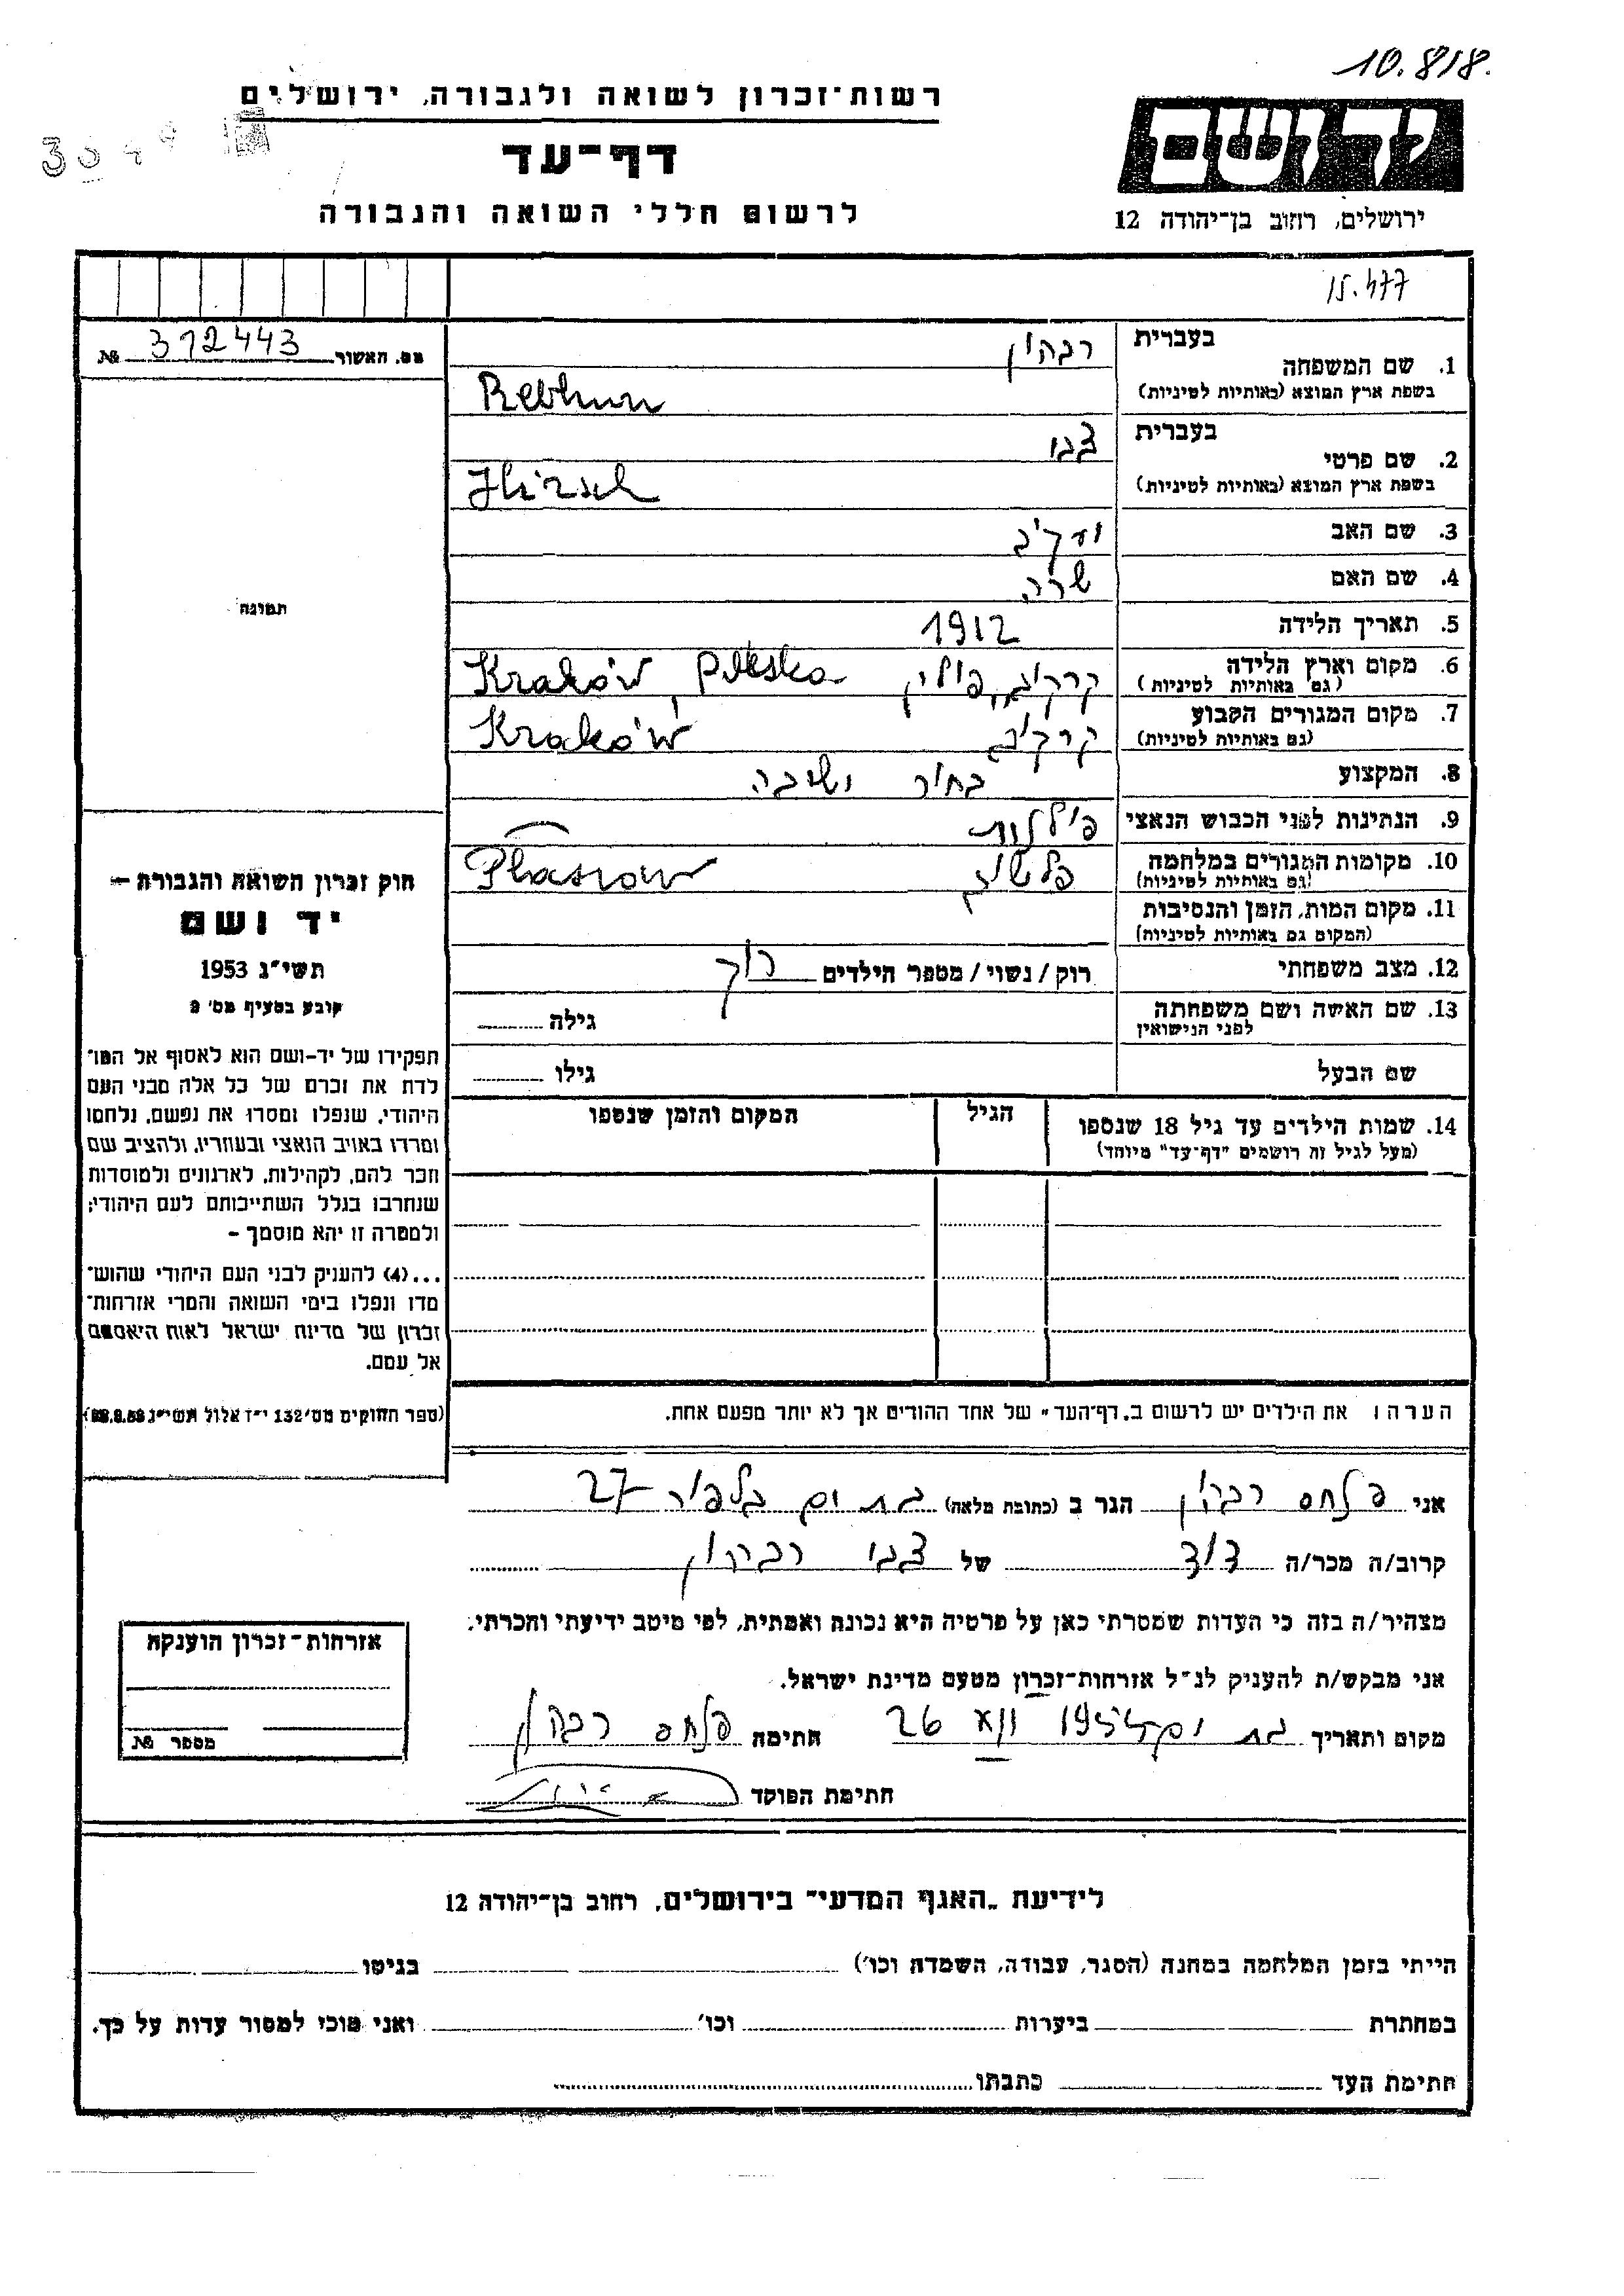 10.818.
רשות-זכרון לשואה ולגבורה, ירושלים
דף-עד
לרשום חללי השואה והגבורה
יד ושם
ירושלים, רחוב בן-יהודה 12
15.477
מס. האשור 312443 №
תמונה
חוק זכרון השואה והגבורה —
יד ושם
תשי״ג 1953
קובע בסעיף מס׳ 2
תפקידו של יד-ושם הוא לאסוף אל המו־
לדת את זכרם של כל אלה מבני העם
היהודי, שנפלו ומסרו את נפשם, נלחמו
ומרדו באויב הנאצי ובעוזריו, ולהציב שם
וזכר להם, לקהילות, לארגונים ולמוסדות
שנחרבו בגלל השתייכותם לעם היהודי;
ולמטרה זו יהא מוסמך —
...(4) להעניק לבני העם היהודי שהוש־
מדו ונפלו בימי השואה והמרי אזרחות־
זכרון של מדינת ישראל לאות היאספם
אל עמם.
(ספר החוקים מס׳ 132 י״ז אלול תשי״ג
1. שם המשפחה
בעברית רבהון
בשפת ארץ המוצא (באותיות לטיניות) Rebhun
2. שם פרטי
בעברית צבי
בשפת ארץ המוצא (באותיות לטיניות) Hirsch
3. שם האב יעקב
4. שם האם שרה
5. תאריך הלידה 1912
6. מקום וארץ הלידה קרקוב, פולין Kraków, Polska
(גם באותיות לטיניות)
7. מקום המגורים הקבוע קרקוב Kraków
(גם באותיות לטיניות)
8. המקצוע בחור ישיבה
9. הנתינות לפני הכבוש הנאצי פולנית
10. מקומות המגורים במלחמה Płaszow
(גם באותיות לטיניות)
11. מקום המות, הזמן והנסיבות
(המקום גם באותיות לטיניות)
12. מצב משפחתי רוק / נשוי / מספר הילדים רוק
13. שם האשה ושם משפחתה גילה
לפני הנישואין
שם הבעל גילו
14. שמות הילדים עד גיל 18 שנספו הגיל המקום והזמן שנספו
(מעל לגיל זה רושמים "דף-עד" מיוחד)
הערה: את הילדים יש לרשום ב„דף-העד״ של אחד ההורים אך לא יותר מפעם אחת.
אני פנחס רבהון הגר ב (כתובת מלאה) בת ים בלפור 27
קרוב/ה מכר/ה דוד של צבי רבהון
מצהיר/ה בזה כי העדות שמסרתי כאן על פרטיה היא נכונה ואמתית, לפי מיטב ידיעתי והכרתי.
אני מבקש/ת להעניק לנ״ל אזרחות-זכרון מטעם מדינת ישראל.
מקום ותאריך בת ים 26 חתימה פנחס רבהון
חתימת הפוקד
אזרחות-זכרון הוענקה
מספר №
לידיעת „האגף המדעי״ בירושלים, רחוב בן-יהודה 12
הייתי בזמן המלחמה במחנה (הסגר, עבודה, השמדה וכו׳) בגיטו
במחתרת ביערות וכו׳ ואני מוכן למסור עדות על כך.
חתימת העד כתבתו